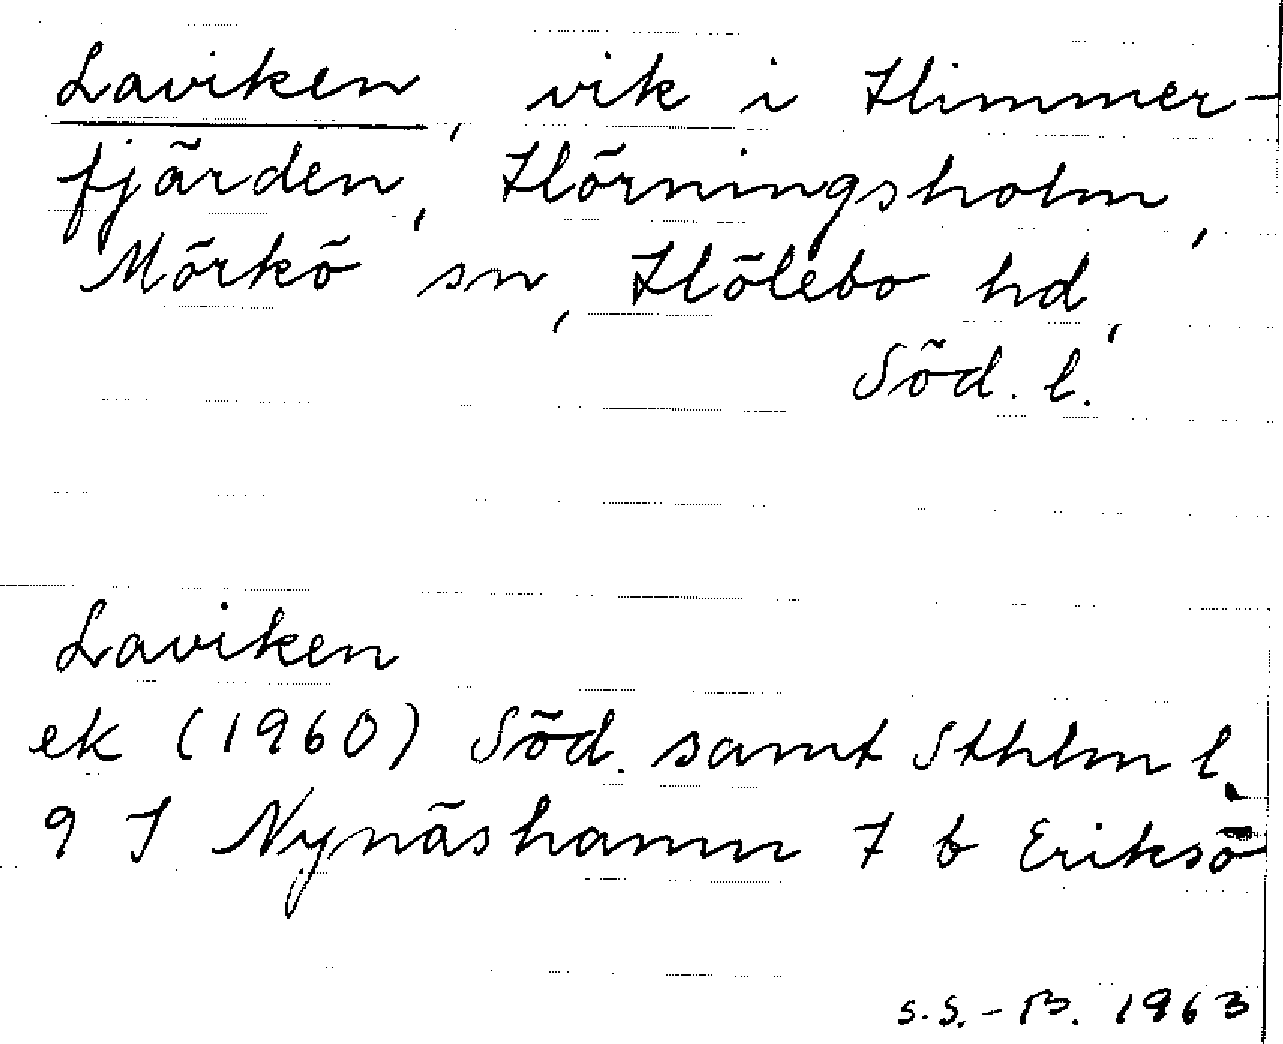 Laviken, vik i Himmer-
fjärden, Hörningsholm,
Mörkö sn, Hölebo hd,
Söd. l.
Laviken
ek (1960) Söd. samt Sthlm l.
9 I Nynäshamn 7 b Eriksö
S.S.-B. 1963